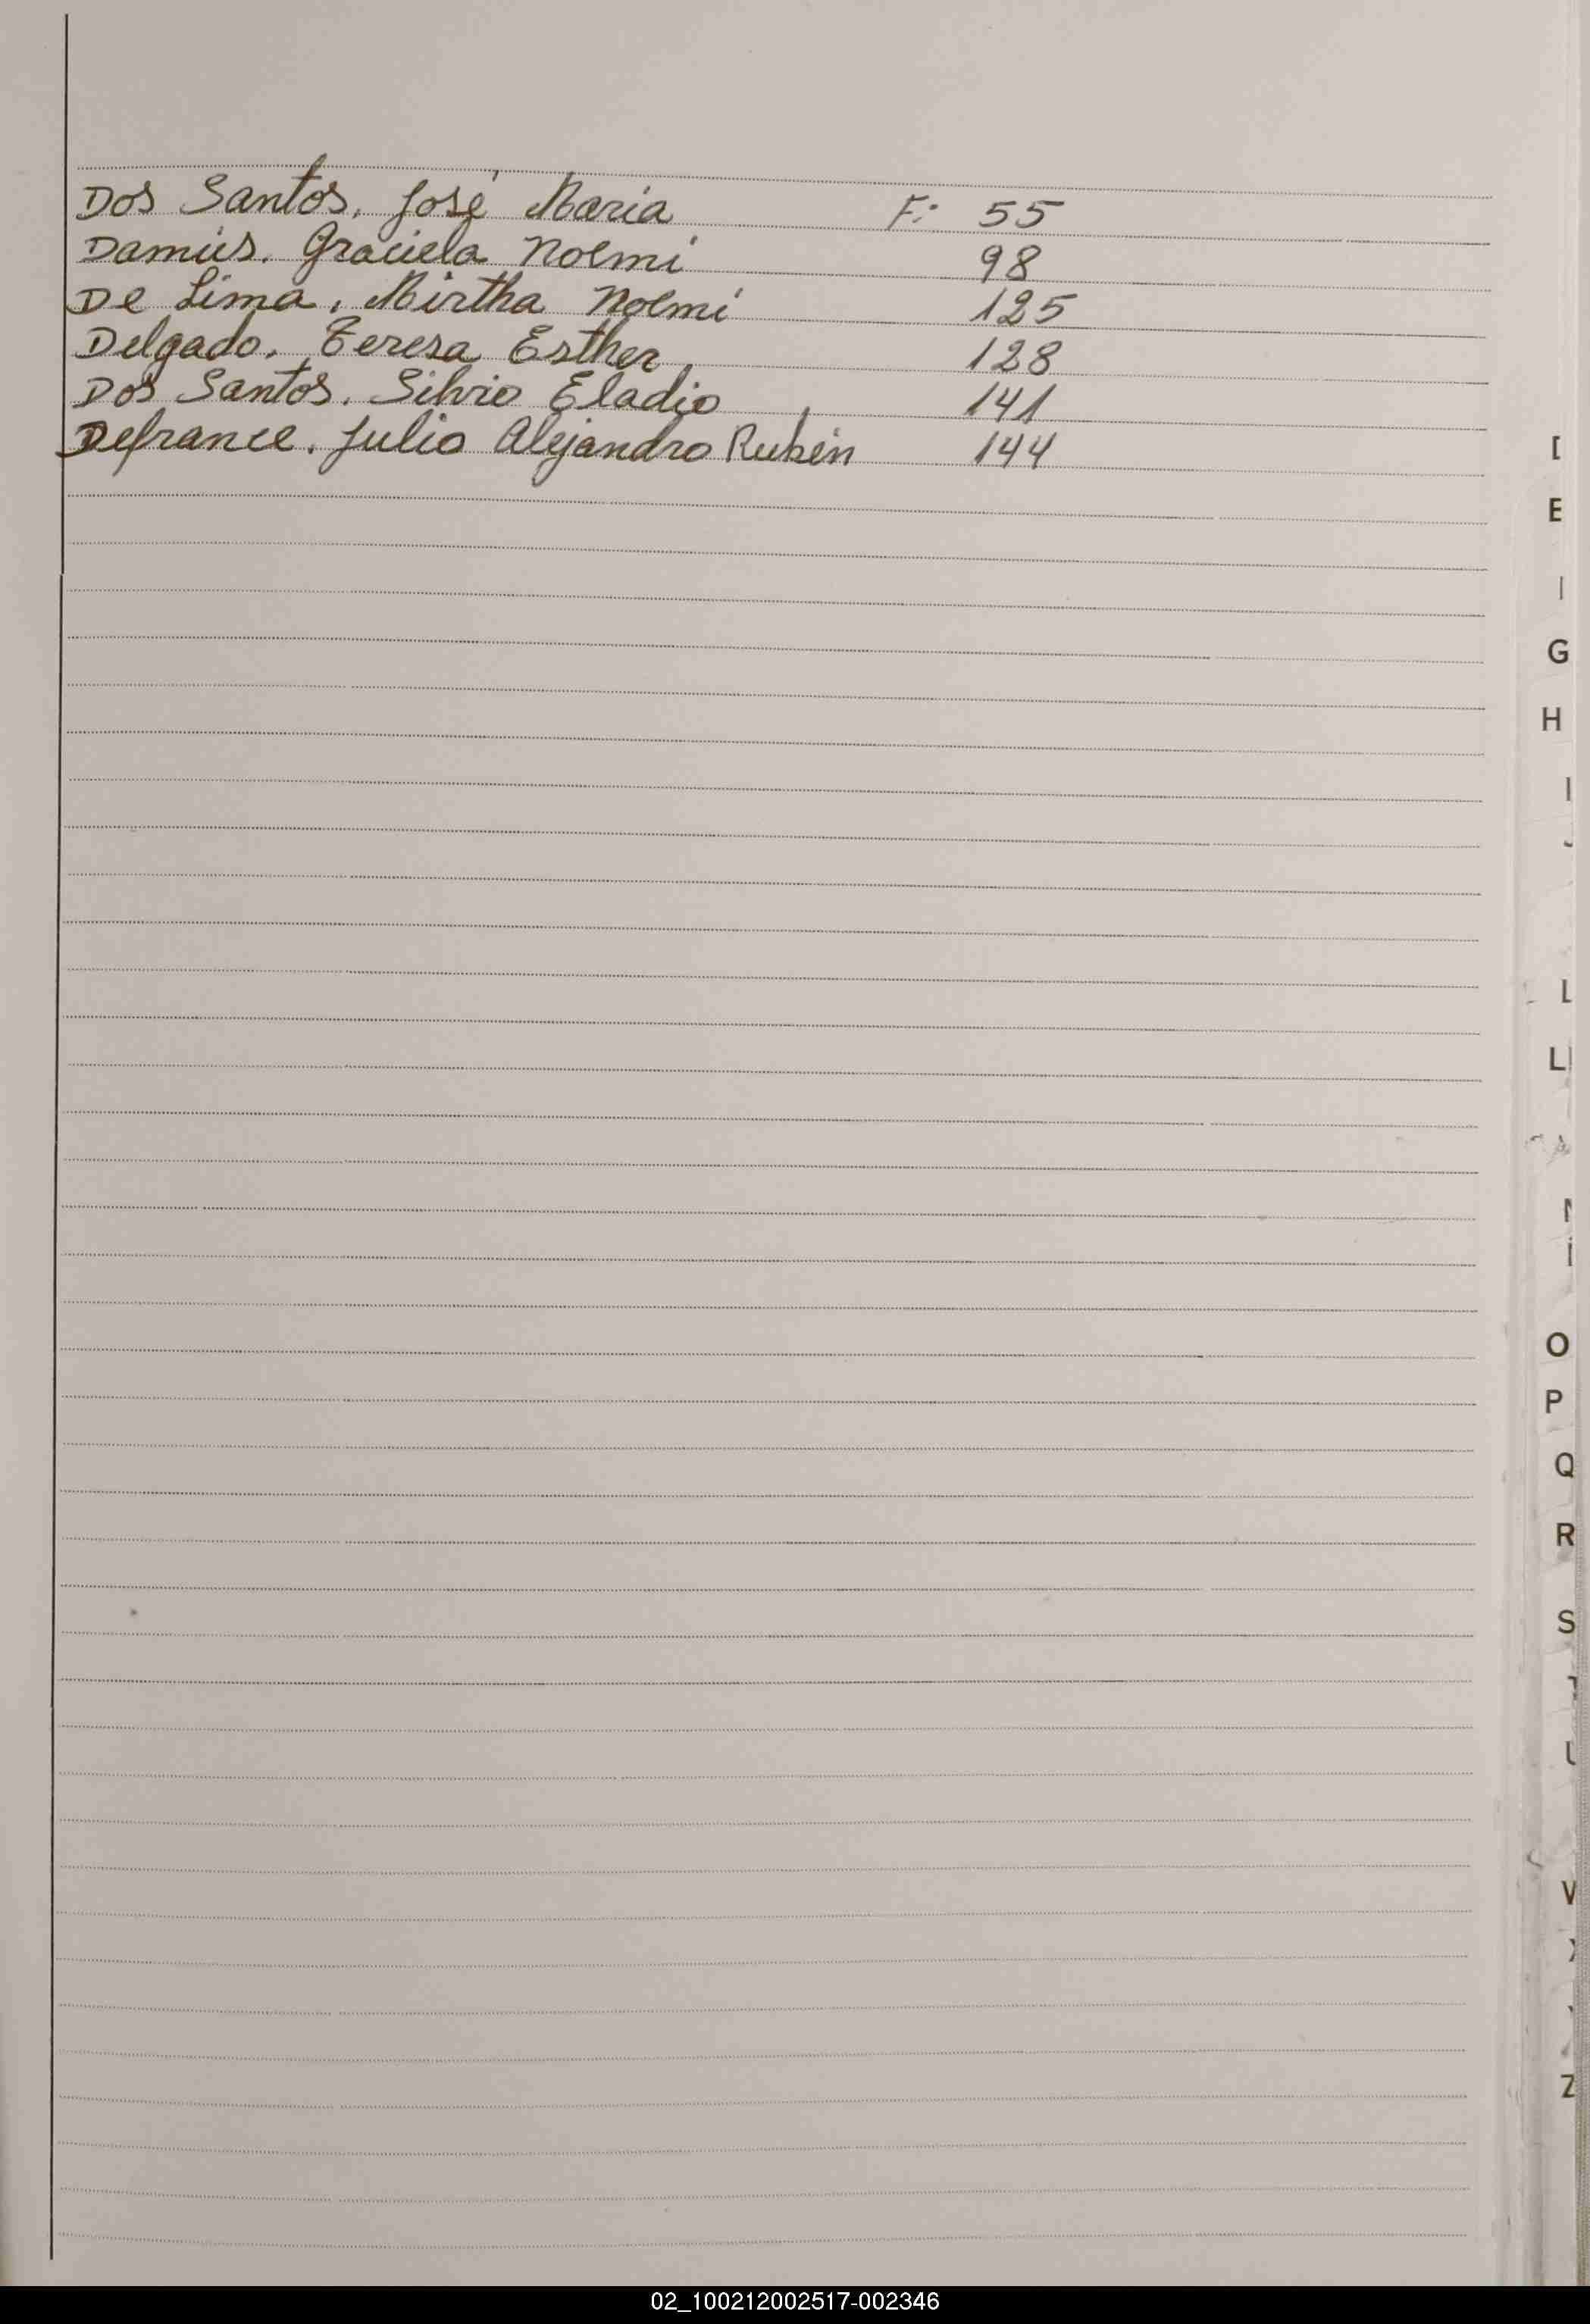 Dos Santos, José Maria F: 55
Damús, Graciela Noemí 98
De Lima, Mirtha Noemí 125
Delgado, Teresa Esther 128
Dos Santos, Silvio Eladio 141
Defrance, Julio Alejandro Rubén 144
E
G
H
I
L
LL
O
P
Q
R
S
Z
02_100212002517-002346